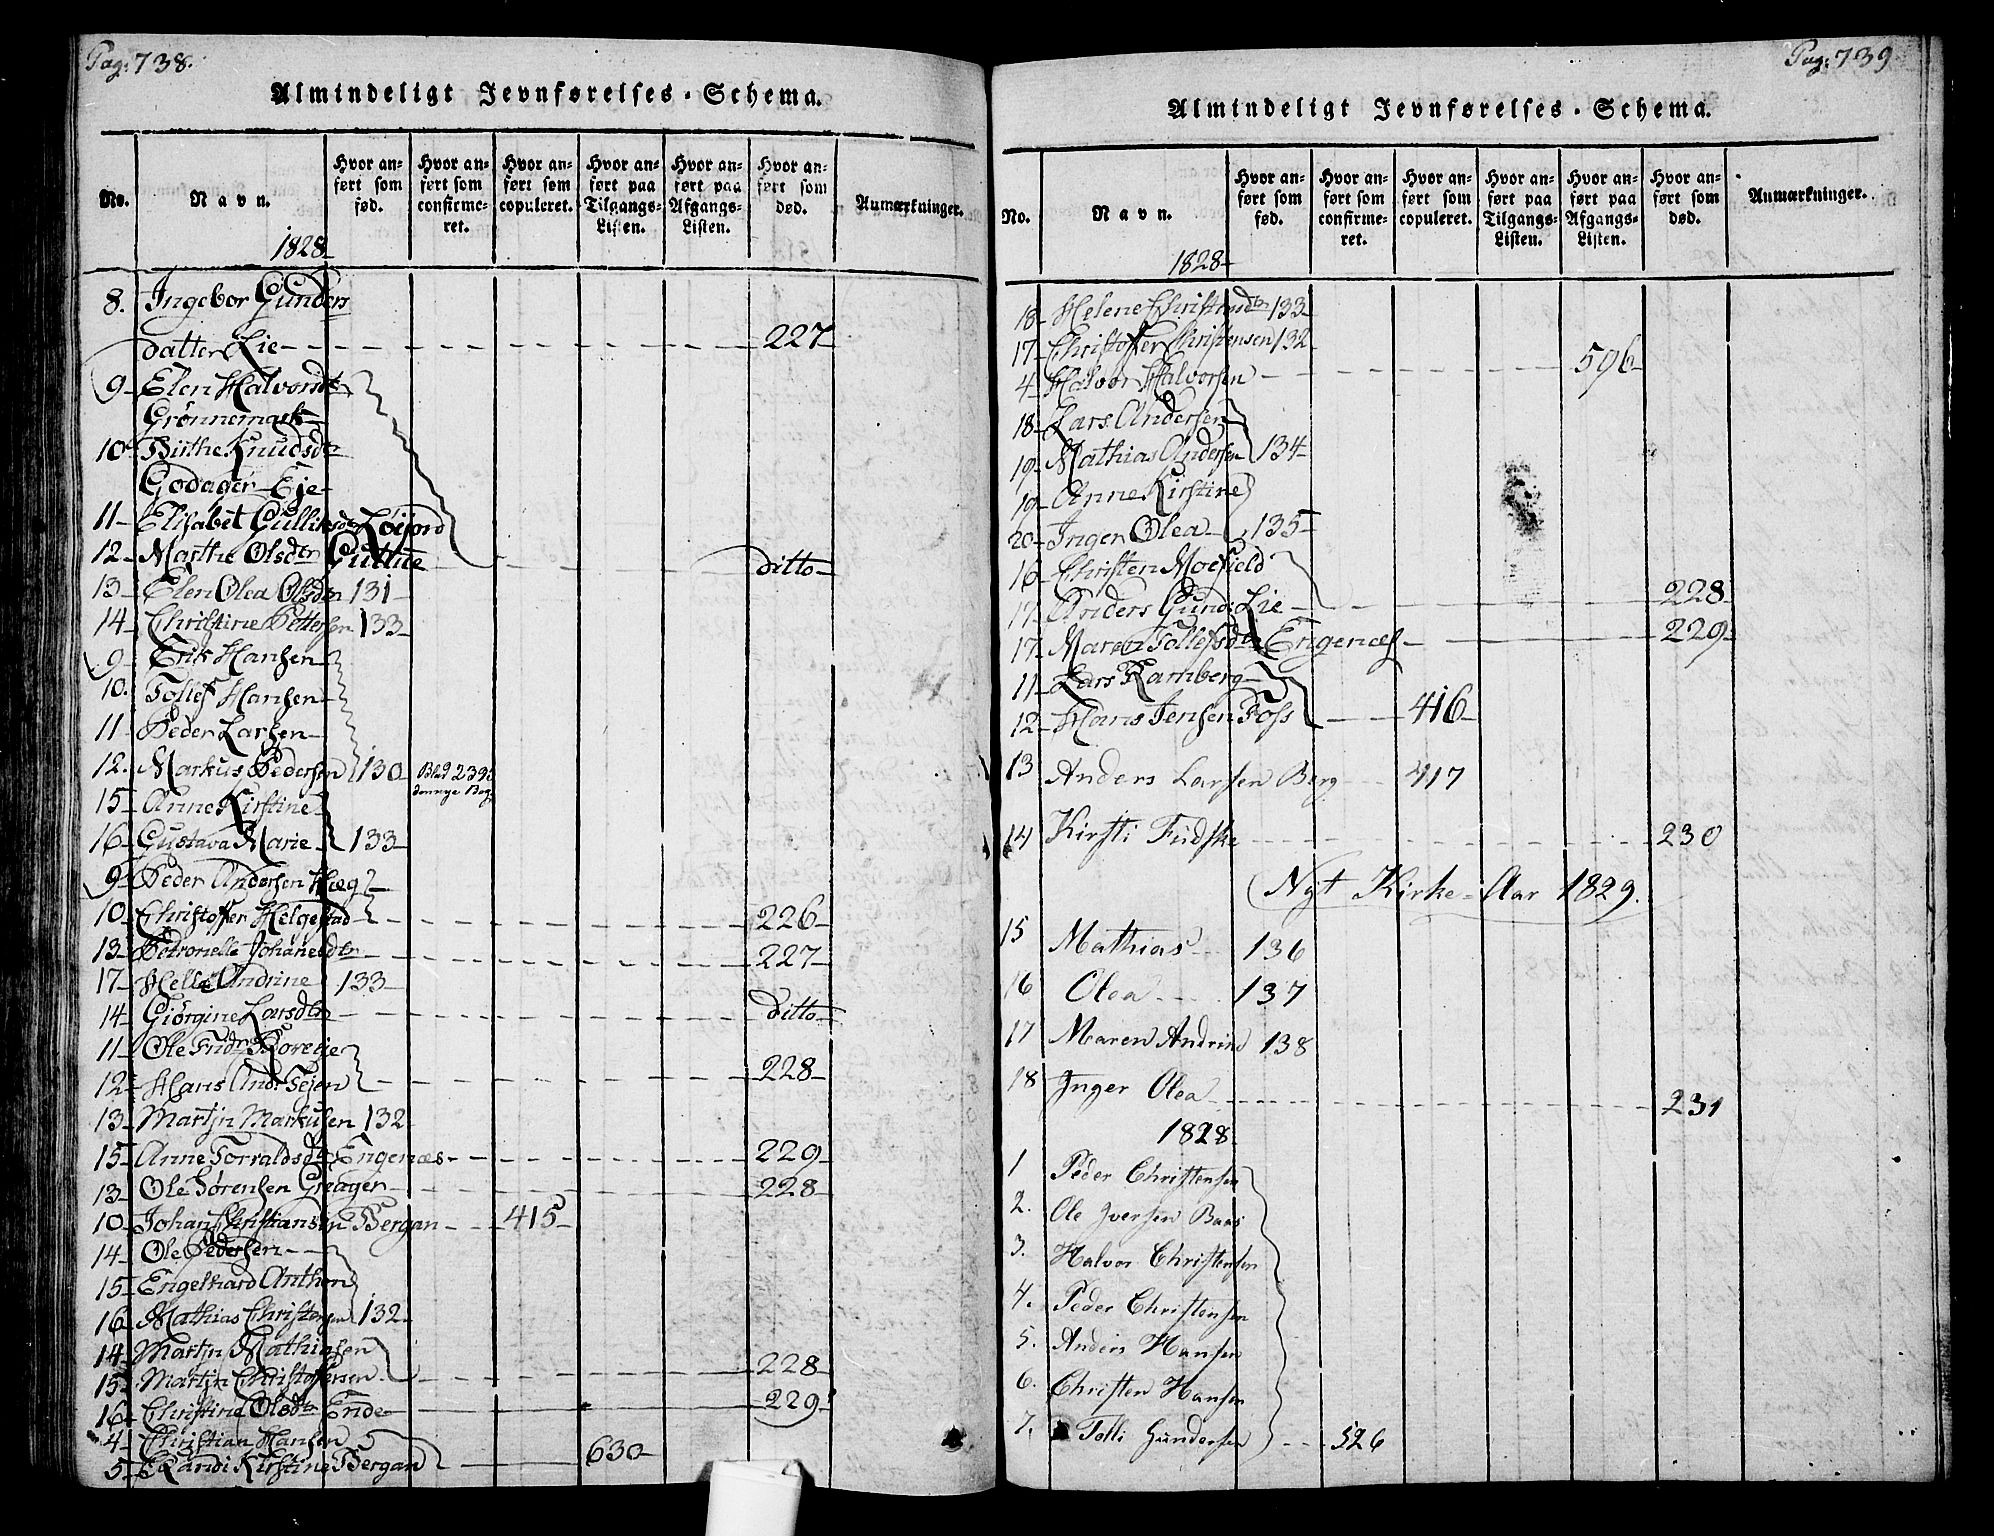 Pag: 738.
Almindeligt Jevnførelses-Schema.
No.
Navn.
Hvor anført som fød.
Hvor anført som confirmeret.
Hvor anført som copuleret.
Hvor anført paa Tilgangs-Listen.
Hvor anført paa Afgangs-Listen.
Hvor anført som død.
Anmærkninger.
1828
8. Ingebor Gunders
datter Lie 227
9 Elen Halvorsdtr
Grönnemark
10 Birthe Knudsdtr
Godager Eje
11 Elisabet Gulliksdtr Löijord
12 Marthe Olsdtr ditto
13 Elen Olea Olsdtr 131
14 Christine Pettersen 133
9 Erik Hansen
10. Tollef Hansen
11 Peder Larsen
12. Markus Pedersen 130 239
15 Anne Kirstine
16 Gustava Marie 133
9 Peder Andersen Hæg
10. Christoffer Helgestad 226
13 Petronelle 227
17 Helle Andrine 133
14 Giörgine Larsdtr ditto
11 Ole
12 Hans And: Tejen 228
13 Martin Markusen 132
15 Anne Torvaldsdtr Engenæs 229
13 Ole Sörensen Greager 228
10 Johan Christiansen Bergan 415
14 Ole Pedersen
15 Engelhard Anthon
16 Mathias Christensen 132
14 Martin Mathiasen
15 Martin Christoffersen 228
16 Christine Olsdtr Ende 229
4 Christian Hansen
5 Randi Kirstine Bergan 630
Pag: 739
Almindeligt Jevnførelses-Schema.
No.
Navn.
Hvor anført som fød.
Hvor anført som confirmeret.
Hvor anført som copuleret.
Hvor anført paa Tilgangs-Listen.
Hvor anført paa Afgangs-Listen.
Hvor anført som død.
Anmærkninger.
1828
18 Helene Christensdtr 133
17 Christoffer Christensen 132
4 Halvor Halvorsen 596
18 Lars Andersen
19 Mathias Andersen 134
19 Anne Kirstine
20 Inger Olea 135
16 Christen Moefield
17 Anders Gund: Lie 228
17 Maren Tollefsdtr Engenæs 229
11 Lars Ramberg
12 Hans Jensen Foss 416
13 Anders Larsen Berg 417
14 Kirsti Fudske 230
Nyt Kirke-Aar 1829.
15 Mathias 136
16 Olea 137
17 Maren Andrine 138
18 Inger Olea 231
1828
1 Peder Christensen
2. Ole Iversen Baas
3. Halvor Christensen
4. Peder Christensen
5. Anders Hansen
6. Christen Hansen
7. Tolli Gundersen 526